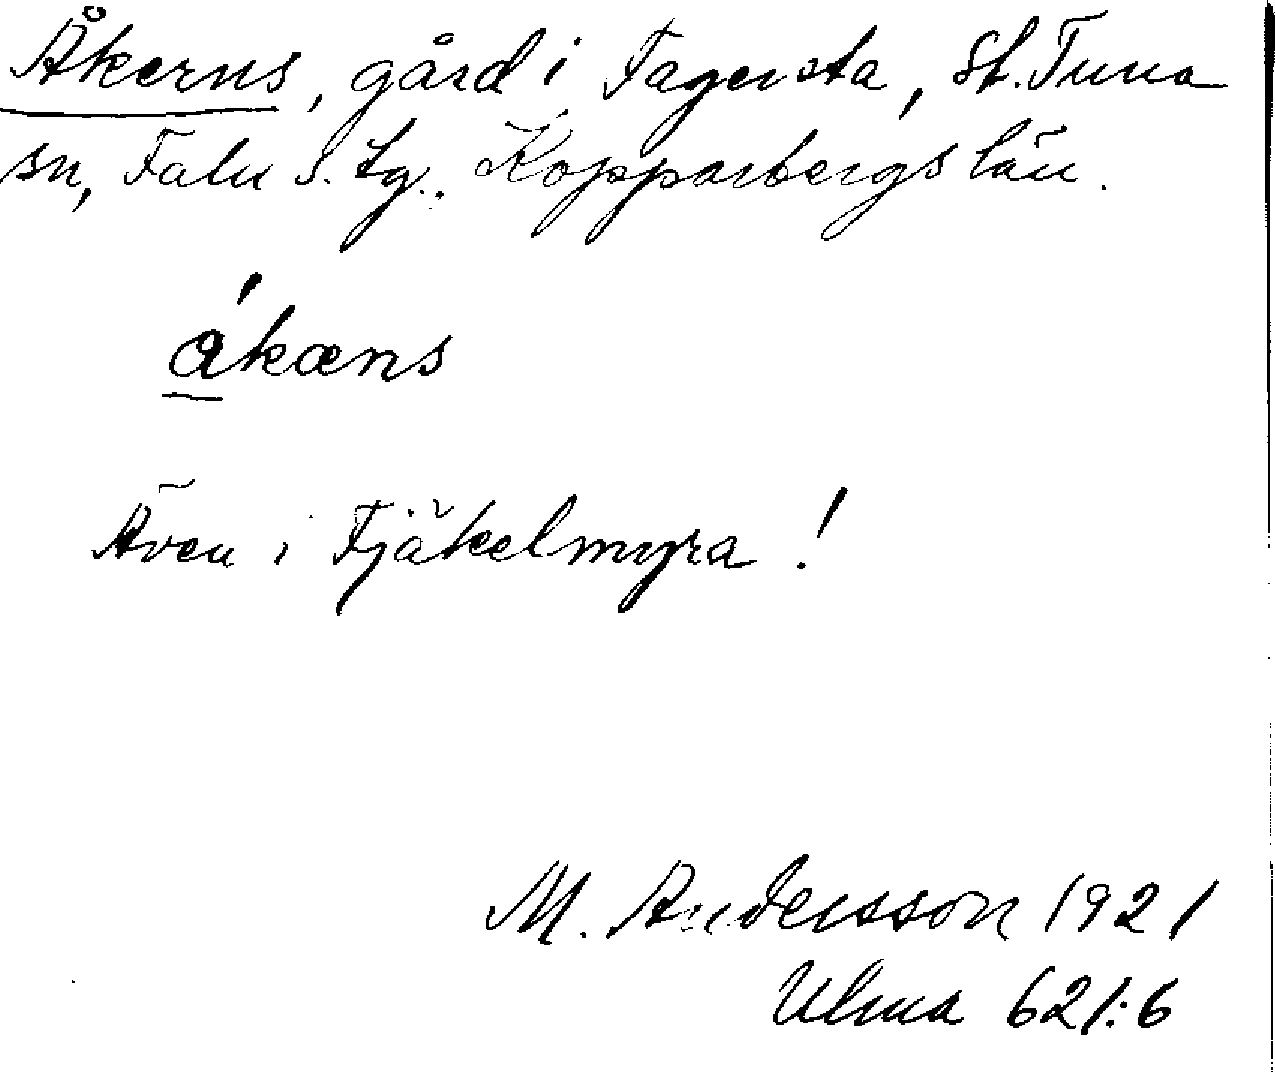 Åkerns, gård i Fagersta, St. Tuna
sn, Falu s. tg. Kopparbergs län.
åkæns
Även i Fjäkelmyra!
M. Andersson 1921
Ulma 621:6